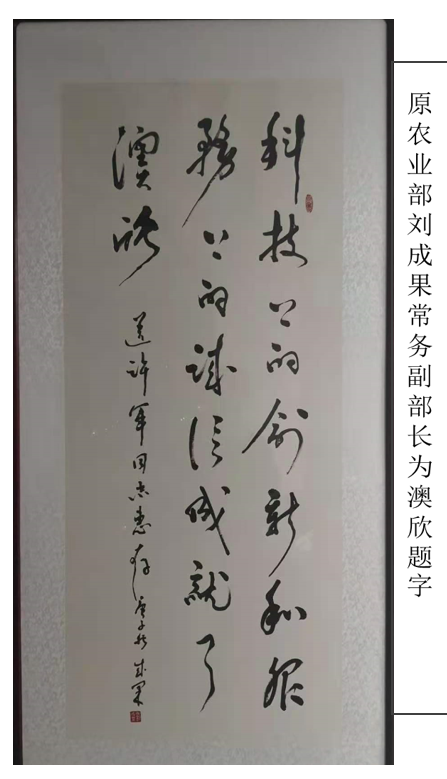 原农业部刘成果常务副部长为澳欣题字
科技上的創新和服
務上的誠信成就了
澳欣
送許軍同志惠存 庚子秋 成果